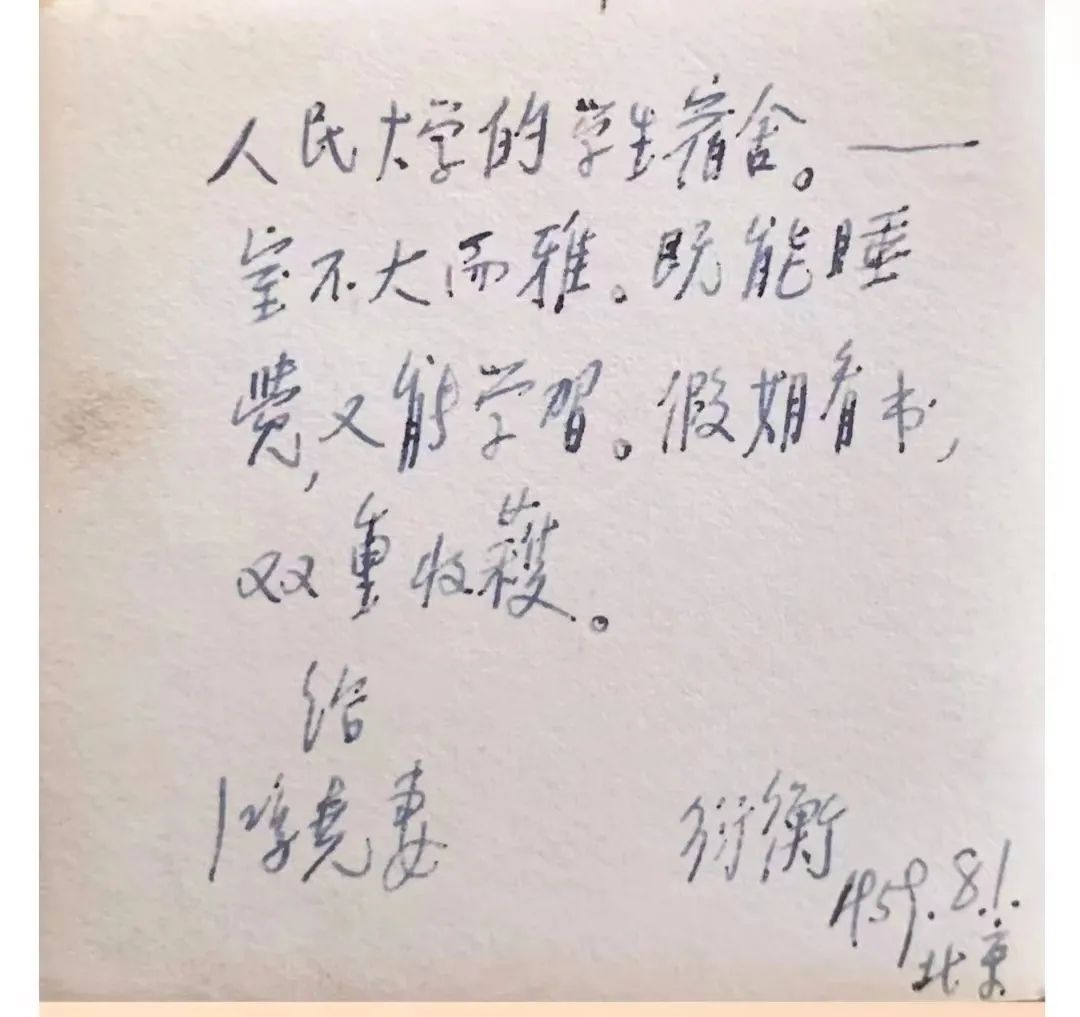 人民大学的学生宿舍。——
室不大而雅。既能睡
觉,又能学习。假期看书,
双重收获。
给
尧妻
衍衡
1959.8.1.
北京